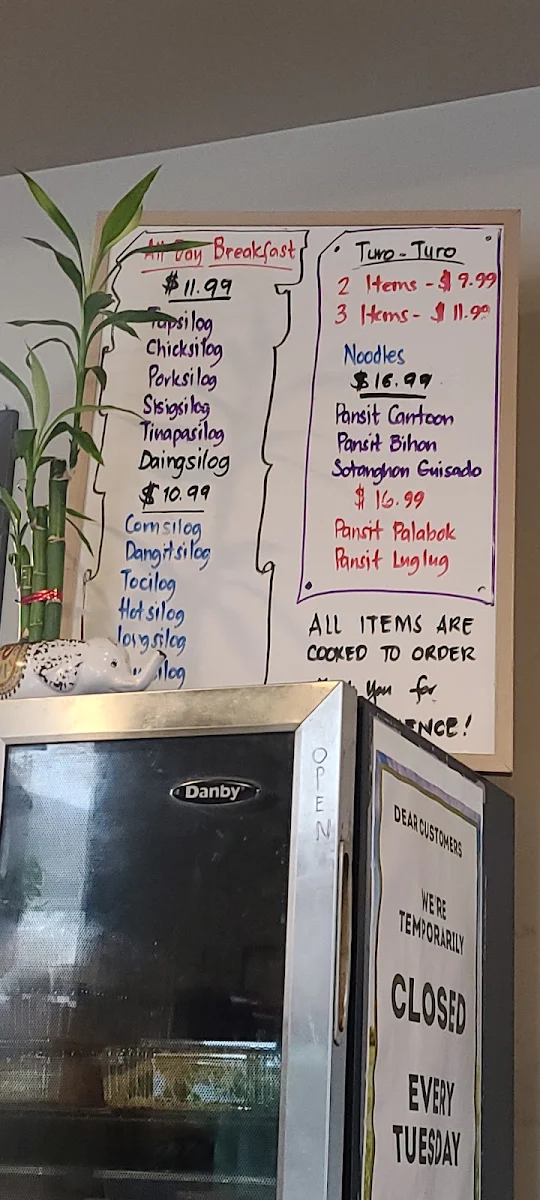 All Day Breakfast
$11.99
Tapsilog
Chicksilog
Porksilog
Sisigsilog
Tinapasilog
Daingsilog
$10.99
Cornsilog
Dangitsilog
Tocilog
Hotsilog
longsilog
Turo-Turo
2 Items - $9.99
3 Items - $11.99
Noodles
$16.99
Pansit Cantoon
Pansit Bihon
Sotanghon Guisado
$16.99
Pansit Palabok
Pansit Luglug
ALL ITEMS ARE
COOKED TO ORDER
You for
ENCE!
Danby
OPEN
DEAR CUSTOMERS
WE'RE
TEMPORARILY
CLOSED
EVERY
TUESDAY